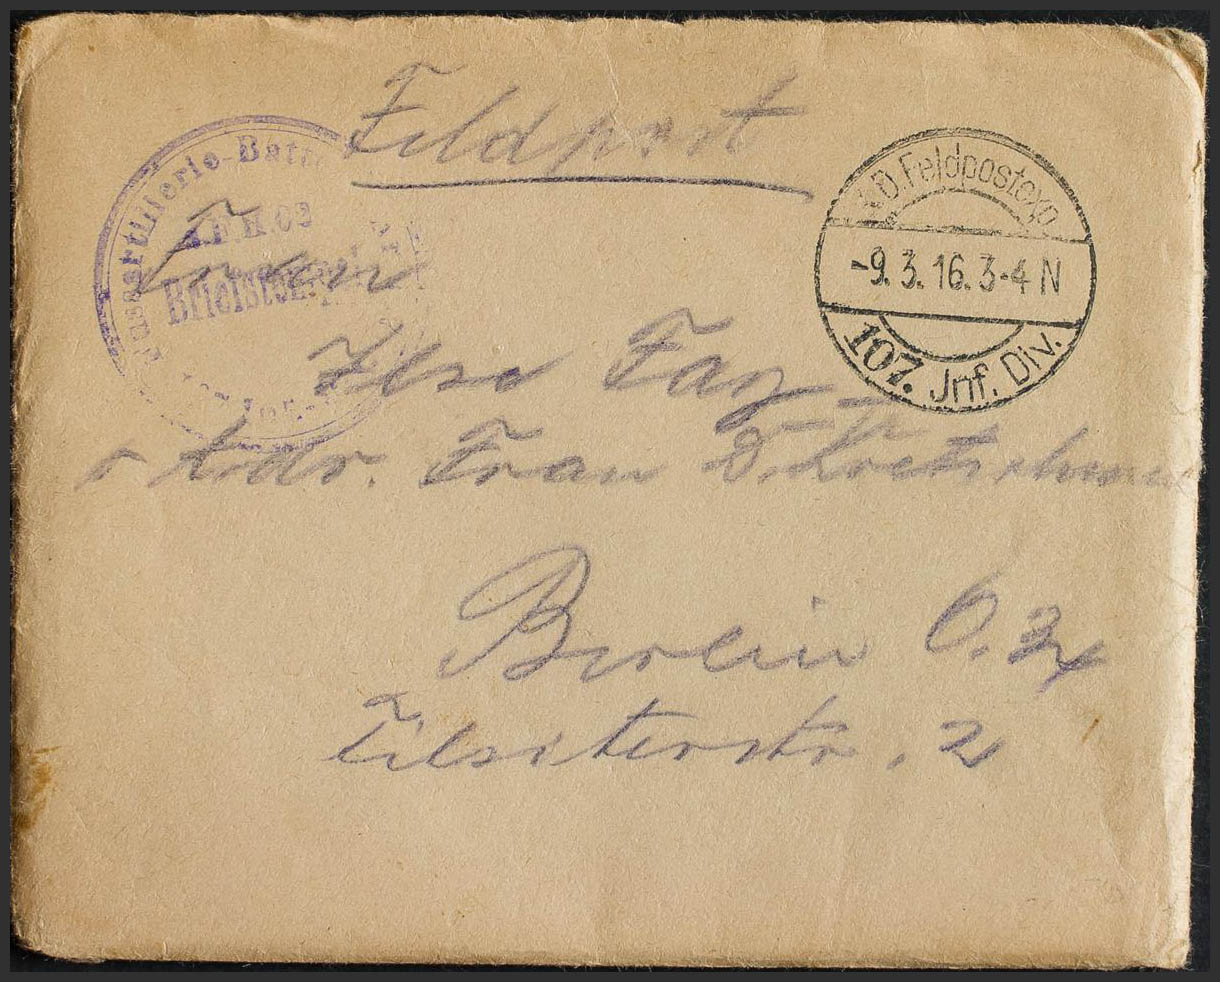 Feldpost
Fussartillerie-Batt
F.H.02
Briefstempel
K.D.Feldpostexp.
-9.3.16.3-4 N
107. Jnf. Div.
Frau
Ilse
Adr. Frau
Berlin O. 34
Tilsiterstr. 2